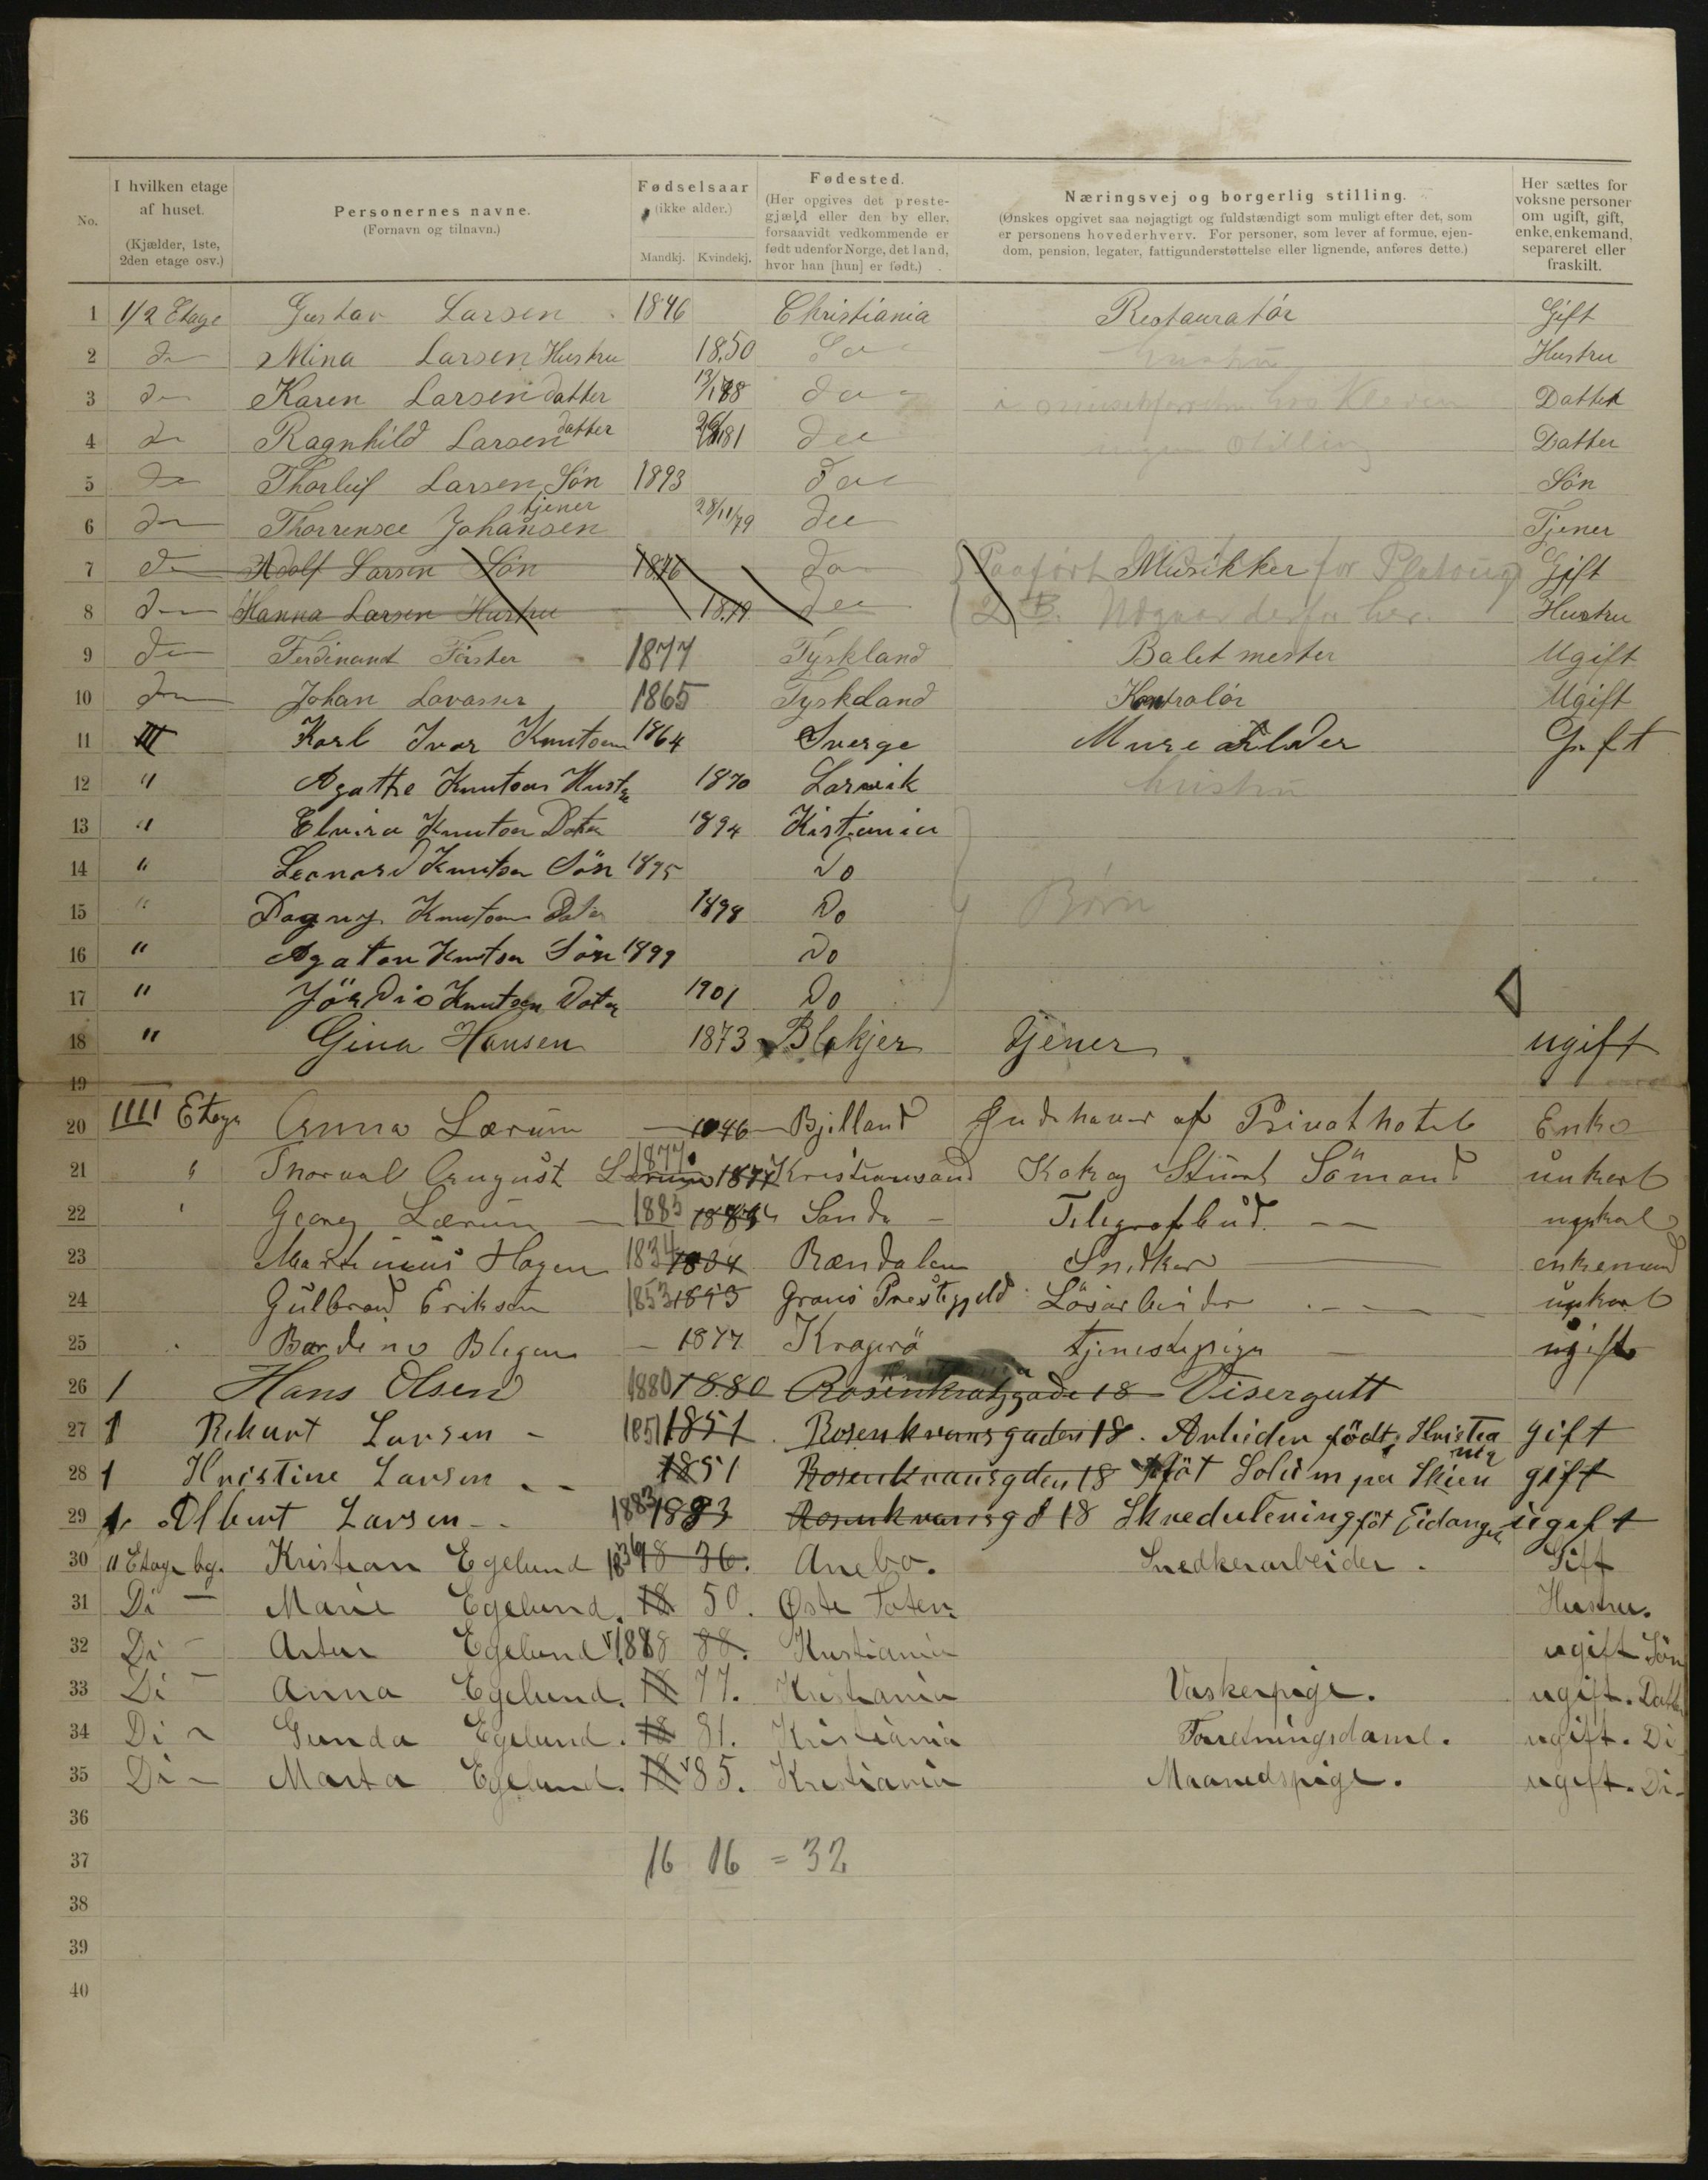 No.
I hvilken etage af huset.
(Kjælder, 1ste, 2den etage osv.)
Personernes navne.
(Fornavn og tilnavn.)
Fødselsaar
(ikke alder.)
Mandkj. Kvindekj.
Fødested.
(Her opgives det preste-
gjæld eller den by eller,
forsaavidt vedkommende er
født udenfor Norge, det land,
hvor han [hun] er født.)
Næringsvej og borgerlig stilling.
(Ønskes opgivet saa nøjagtigt og fuldstændigt som muligt efter det, som
er personens hovederhverv. For personer, som lever af formue, ejen-
dom, pension, legater, fattigunderstøttelse eller lignende, anføres dette.)
Her sættes for
voksne personer
om ugift, gift,
enke, enkemand,
separeret eller
fraskilt.
1 1/2 Etage Gustav Larsen 1846 Christiania Restauratör Gift
2 do Mina Larsen Hustru 1850 do Hustru Hustru
3 do Karen Larsen datter do Datter
4 do Ragnhild Larsen datter do ingen Stilling Datter
5 do Thorleif Larsen Sön 1893 do Sön
6 do Johansen tjener 28/11/79 do Tjener
7 do Adolf Larsen Sön 1876 do Paaført Musikker for Gift
8 do Hanna Larsen Hustru do derfor her. Hustru
9 do Ferdinand Förster 1877 Tyskland Balet mester Ugift
10 do Johan 1865 Tyskland Kontrolör Ugift
11 III Karl Ivar Knutsen 1864 Sverge Mure Gift
12 " Agathe Knutsen Hustru 1870 Larvik hustru
13 " Elvira Knutsen Dater 1894 Kistiania
14 " Leonard Knutsen Sön 1895 Do
15 " Dagny Knutsen Dater 1898 Do Børn
16 " Agaton Knutsen Sön 1899 Do
17 " Jördis Knutsen Dater 1901 Do
18 " Gina Hansen 1873 Blakjer tjener ugift
19
20 IIII Etage Anna Lærum 1846 Bjelland Indehaver af Privathotel Enke
21 " Thorval August Lærum 1877 1877 Kristiansand Kok og Stuert Sömand unkarl
22 " Georg Lærum 1883 Sande Telegrafbud ungkarl
23 Martinius Hagen 1834 1834 Snedker enkemand
24 Gulbrand Eriksen 1853 Grans Prestegjeld Lösarbeider ungkarl
25 1877 Kragerö tjenestepige ugift
26 1 Hans Olsen 1880 1880 Rosenkrantzgade 18 Visergutt
27 1 Rikart Larsen 1851 1851 Rosenkransgaden 18. Arbeider födt i Kristia nia gift
28 1 Kristine Larsen 1851 Rosenkransgden 18 föt Solum pr Skien gift
29 1 Albert Larsen 1883 1883 Rosenkransgd 18 föt Eidanger ugift
30 II Etage bg. Kristian Egelund 1836 18 36. Anebo. Snedkerarbeider. Gift
31 Di Marie Egelund. 18 50. Øste Toten. Hustru.
32 Di Artur Egelund 1888 88. Kristiania ugift Sön
33 Di Anna Egelund. 18 77. Kristiania Vaskerpige. ugift. Datter
34 Di Gunda Egelund. 18 81. Kristiania Forretningsdame. ugift. Di
35 Di Marta Egelund. 18 85. Kristiania Maanedspige. ugift. Di
36
37 16 16 = 32
38
39
40